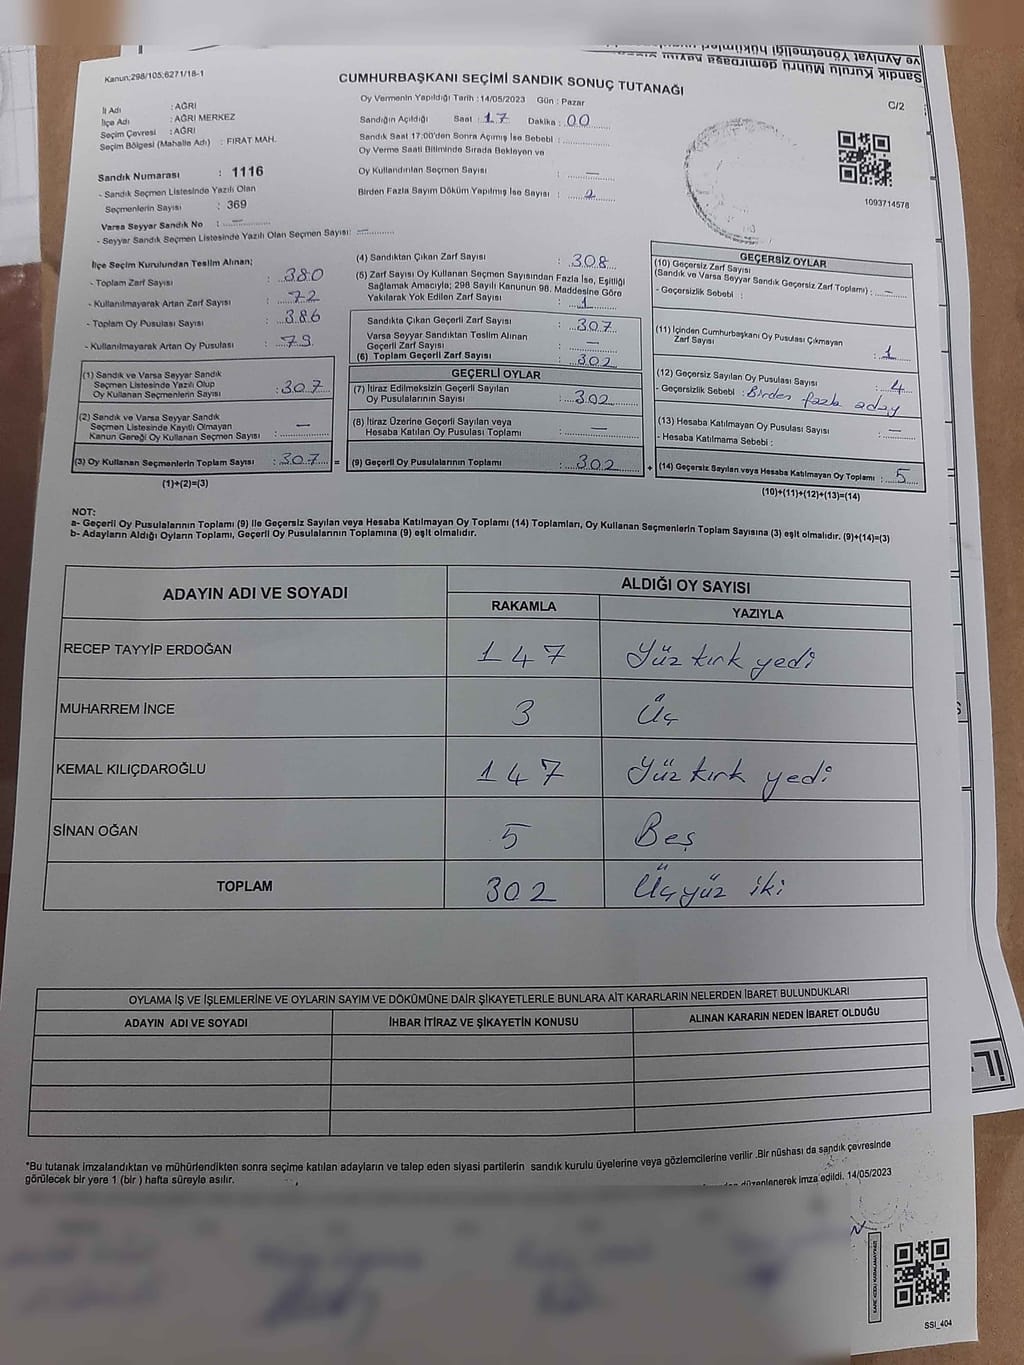 Sandık Kurulu Mühürü demirbaşa kayıtlı
ve Ayniyat Yönetmeliği hükümleri
Kanun;298/105;6271/18-1
CUMHURBAŞKANI SEÇİMİ SANDIK SONUÇ TUTANAĞI
C/2
İl Adı : AĞRI
İlçe Adı : AĞRI MERKEZ
Seçim Çevresi : AĞRI
Seçim Bölgesi (Mahalle Adı) : FIRAT MAH.
Sandık Numarası : 1116
- Sandık Seçmen Listesinde Yazılı Olan
Seçmenlerin Sayısı : 369
Varsa Seyyar Sandık No : —
- Seyyar Sandık Seçmen Listesinde Yazılı Olan Seçmen Sayısı: —
Oy Vermenin Yapıldığı Tarih : 14/05/2023 Gün : Pazar
Sandığın Açıldığı Saat : 17 Dakika : 00
Sandık Saat 17:00'den Sonra Açımış İse Sebebi :
Oy Verme Saati Bitiminde Sırada Bekleyen ve
Oy Kullandırılan Seçmen Sayısı : —
Birden Fazla Sayım Döküm Yapılmış İse Sayısı : 2
1093714578
İlçe Seçim Kurulundan Teslim Alınan;
- Toplam Zarf Sayısı : 380
- Kullanılmayarak Artan Zarf Sayısı : 72
- Toplam Oy Pusulası Sayısı : 386
- Kullanılmayarak Artan Oy Pusulası : 79
(1) Sandık ve Varsa Seyyar Sandık
Seçmen Listesinde Yazılı Olup
Oy Kullanan Seçmenlerin Sayısı : 307
(2) Sandık ve Varsa Seyyar Sandık
Seçmen Listesinde Kayıtlı Olmayan
Kanun Gereği Oy Kullanan Seçmen Sayısı : —
(3) Oy Kullanan Seçmenlerin Toplam Sayısı : 307 =
(1)+(2)=(3)
(4) Sandıktan Çıkan Zarf Sayısı : 308
(5) Zarf Sayısı Oy Kullanan Seçmen Sayısından Fazla İse, Eşitliği
Sağlamak Amacıyla; 298 Sayılı Kanunun 98. Maddesine Göre
Yakılarak Yok Edilen Zarf Sayısı : 1
Sandıkta Çıkan Geçerli Zarf Sayısı : 307
Varsa Seyyar Sandıktan Teslim Alınan
Geçerli Zarf Sayısı : —
(6) Toplam Geçerli Zarf Sayısı : 302
GEÇERLİ OYLAR
(7) İtiraz Edilmeksizin Geçerli Sayılan
Oy Pusulalarının Sayısı : 302
(8) İtiraz Üzerine Geçerli Sayılan veya
Hesaba Katılan Oy Pusulası Toplamı : —
(9) Geçerli Oy Pusulalarının Toplamı : 302 +
GEÇERSİZ OYLAR
(10) Geçersiz Zarf Sayısı
(Sandık ve Varsa Seyyar Sandık Geçersiz Zarf Toplamı) : —
- Geçersizlik Sebebi :
(11) İçinden Cumhurbaşkanı Oy Pusulası Çıkmayan
Zarf Sayısı : 1
(12) Geçersiz Sayılan Oy Pusulası Sayısı : 4
- Geçersizlik Sebebi : Birden fazla aday
(13) Hesaba Katılmayan Oy Pusulası Sayısı : —
- Hesaba Katılmama Sebebi :
(14) Geçersiz Sayılan veya Hesaba Katılmayan Oy Toplamı : 5
(10)+(11)+(12)+(13)=(14)
NOT:
a- Geçerli Oy Pusulalarının Toplamı (9) ile Geçersiz Sayılan veya Hesaba Katılmayan Oy Toplamı (14) Toplamları, Oy Kullanan Seçmenlerin Toplam Sayısına (3) eşit olmalıdır. (9)+(14)=(3)
b- Adayların Aldığı Oyların Toplamı, Geçerli Oy Pusulalarının Toplamına (9) eşit olmalıdır.
ADAYIN ADI VE SOYADI ALDIĞI OY SAYISI
RAKAMLA YAZIYLA
RECEP TAYYİP ERDOĞAN 147 Yüz kırk yedi
MUHARREM İNCE 3 Üç
KEMAL KILIÇDAROĞLU 147 Yüz kırk yedi
SİNAN OĞAN 5 Beş
TOPLAM 302 Üçyüz iki
OYLAMA İŞ VE İŞLEMLERİNE VE OYLARIN SAYIM VE DÖKÜMÜNE DAİR ŞİKAYETLERLE BUNLARA AİT KARARLARIN NELERDEN İBARET BULUNDUKLARI
ADAYIN ADI VE SOYADI İHBAR İTİRAZ VE ŞİKAYETİN KONUSU ALINAN KARARIN NEDEN İBARET OLDUĞU
*Bu tutanak imzalandıktan ve mühürlendikten sonra seçime katılan adayların ve talep eden siyasi partilerin sandık kurulu üyelerine veya gözlemcilerine verilir .Bir nüshası da sandık çevresinde
görülecek bir yere 1 (bir ) hafta süreyle asılır.
düzenlenerek imza edildi. 14/05/2023
SSI_404